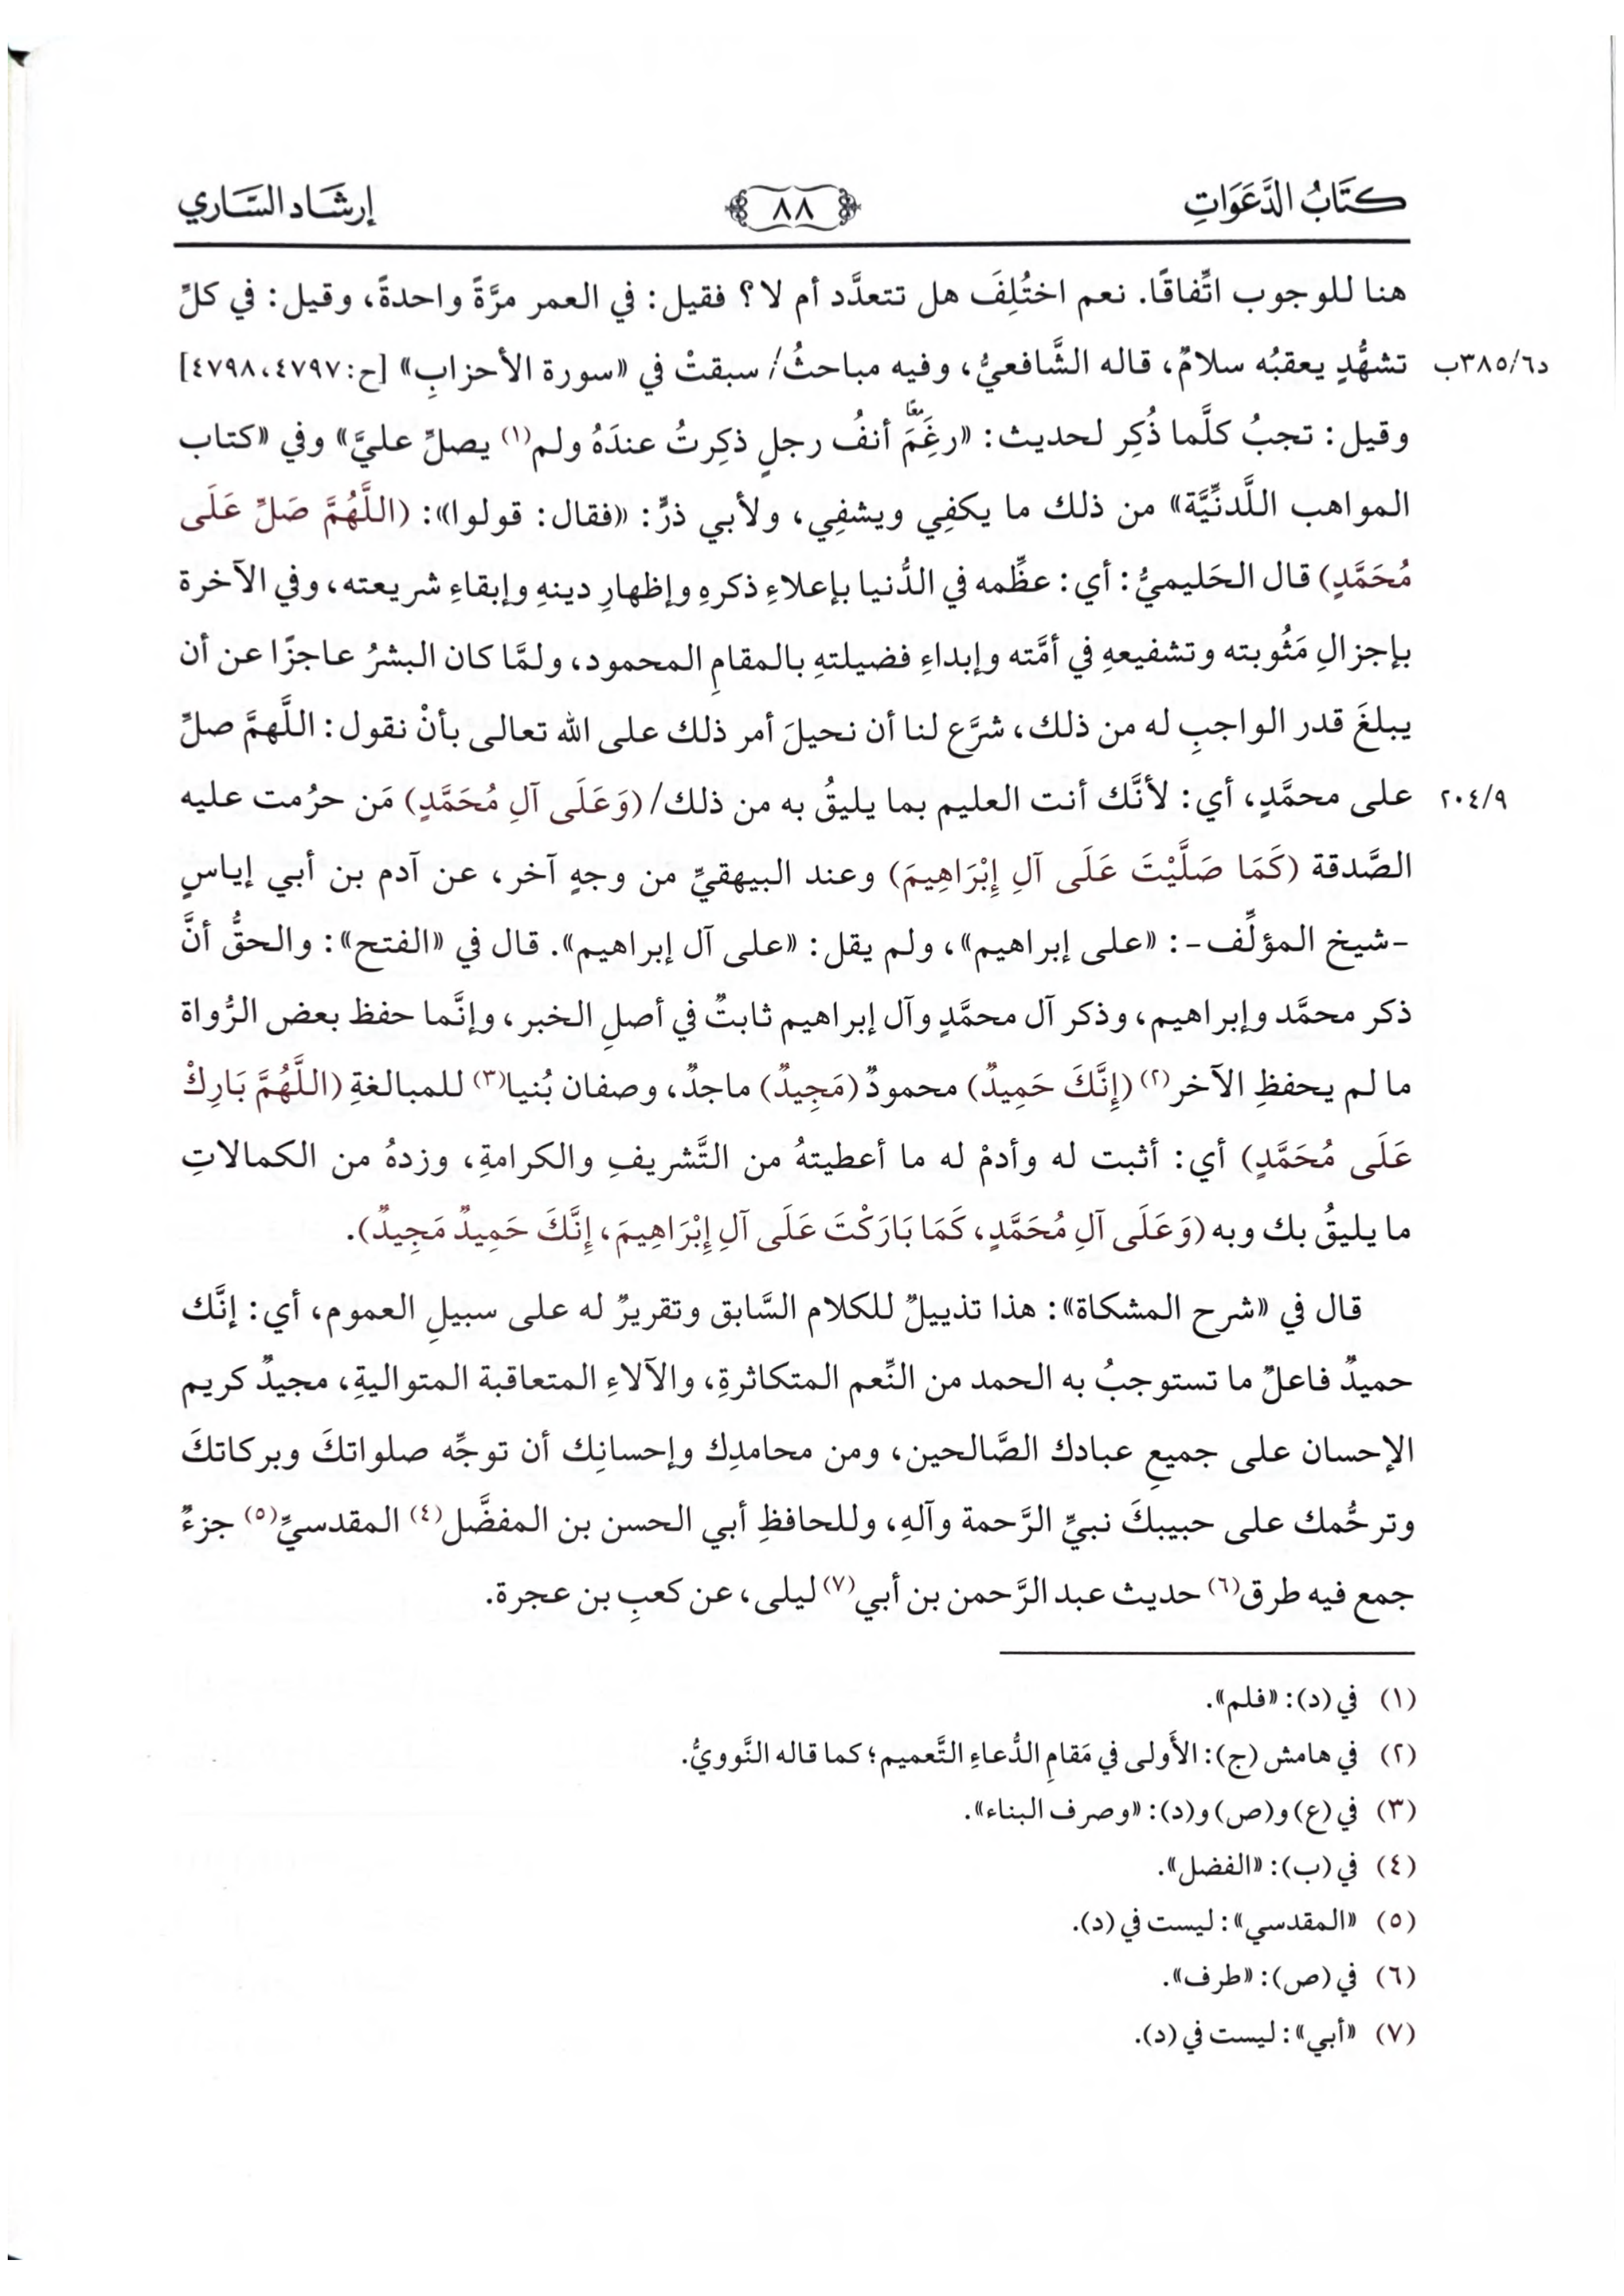 كتَابُ الدَّعَوَاتِ
٨٨
إرشَاد السَّاري
هنا للوجوب اتِّفاقًا. نعم اختُلِفَ هل تتعدَّد أم لا؟ فقيل: في العمر مرَّةً واحدةً، وقيل: في كلِّ
د٣٨٥/٦ب
تشهُّدٍ يعقبُه سلامٌ، قاله الشَّافعيُّ، وفيه مباحثُ/ سبقتْ في «سورة الأحزابِ» [ح:٤٧٩٨،٤٧٩٧]
وقيل: تجبُ كلَّما ذُكِر لحديث: «رغَِمَ أنفُ رجلٍ ذكِرتُ عندَهُ ولم(١) يصلِّ عليَّ» وفي «كتاب
المواهب اللَّدنِّيَّة» من ذلك ما يكفِي ويشفِي، ولأبي ذرٍّ: «فقال: قولوا»: (اللَّهُمَّ صَلِّ عَلَى
مُحَمَّدٍ) قال الحَليميُّ: أي: عظِّمه في الدُّنيا بإعلاءِ ذكرهِ وإظهارِ دينهِ وإبقاءِ شريعته، وفي الآخرة
بإجزالِ مَثُوبته وتشفيعهِ في أمَّته وإبداءِ فضيلتهِ بالمقامِ المحمود، ولمَّا كان البشرُ عاجزًا عن أن
يبلغَ قدر الواجبِ له من ذلك، شرَّع لنا أن نحيلَ أمر ذلك على الله تعالى بأنْ نقول: اللَّهمَّ صلِّ
٢٠٤/٩
على محمَّدٍ، أي: لأنَّك أنت العليم بما يليقُ به من ذلك/ (وَعَلَى آلِ مُحَمَّدٍ) مَن حرُمت عليه
الصَّدقة (كَمَا صَلَّيْتَ عَلَى آلِ إِبْرَاهِيمَ) وعند البيهقيِّ من وجهٍ آخر، عن آدم بن أبي إياسٍ
-شيخ المؤلِّف-: «على إبراهيم»، ولم يقل: «على آل إبراهيم». قال في «الفتح»: والحقُّ أنَّ
ذكر محمَّد وإبراهيم، وذكر آل محمَّدٍ وآل إبراهيم ثابتٌ في أصلِ الخبر، وإنَّما حفظ بعض الرُّواة
ما لم يحفظِ الآخر(٢) (إِنَّكَ حَمِيدٌ) محمودٌ (مَجِيدٌ) ماجدٌ، وصفان بُنيا(٣) للمبالغةِ (اللَّهُمَّ بَارِكْ
عَلَى مُحَمَّدٍ) أي: أثبت له وأدمْ له ما أعطيتهُ من التَّشريفِ والكرامةِ، وزدهُ من الكمالاتِ
ما يليقُ بك وبه (وَعَلَى آلِ مُحَمَّدٍ، كَمَا بَارَكْتَ عَلَى آلِ إِبْرَاهِيمَ، إِنَّكَ حَمِيدٌ مَجِيدٌ).
قال في «شرح المشكاة»: هذا تذييلٌ للكلام السَّابق وتقريرٌ له على سبيلِ العموم، أي: إنَّك
حميدٌ فاعلٌ ما تستوجبُ به الحمد من النِّعم المتكاثرةِ، والآلاءِ المتعاقبة المتواليةِ، مجيدٌ كريم
الإحسان على جميعِ عبادك الصَّالحين، ومن محامدِك وإحسانِك أن توجِّه صلواتكَ وبركاتكَ
وترحُّمك على حبيبكَ نبيِّ الرَّحمة وآلهِ، وللحافظِ أبي الحسن بن المفضَّل(٤) المقدسيِّ(٥) جزءٌ
جمع فيه طرق(٦) حديث عبد الرَّحمن بن أبي(٧) ليلى، عن كعبِ بن عجرة.
(١) في (د): «فلم».
(٢) في هامش (ج): الأَولى في مَقامِ الدُّعاءِ التَّعميم؛ كما قاله النَّوويُّ.
(٣) في (ع) و(ص) و(د): «وصرف البناء».
(٤) في (ب): «الفضل».
(٥) «المقدسي»: ليست في (د).
(٦) في (ص): «طرف».
(٧) «أبي»: ليست في (د).